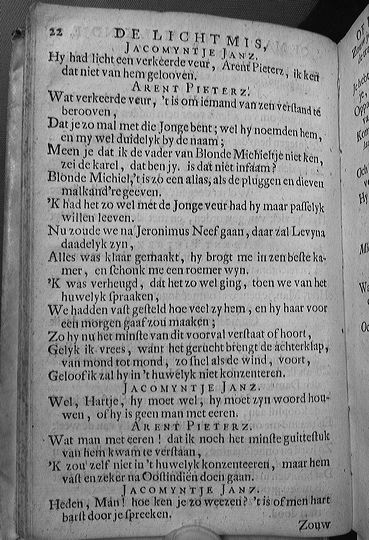 22 DE LICHTMIS,
JACOMYNTJE JANZ.
Hy had licht een verkeerde veur, Arent Pieterz, ik ken
dat niet van hem gelooven.
ARENT PIETERZ.
Wat verkeerde veur, 't is om iemand van zen verstand te
berooven,
Dat je zo mal met die Jonge bent; wel hy noemden hem,
en my wel duidelyk by de naam;
Meen je dat ik de vader van Blonde Michieltje niet ken,
zei de karel, dat ben jy. is dat niet infaam?
Blonde Michiel, 't is zo een alias, als de pluggen en dieven
malkand're geeven.
'K had het zo wel met de Jonge veur had hy maar passelyk
willen leeven.
Nu zoude we na Jeronimus Neef gaan, daar zal Levyna
daadelyk zyn,
Alles was klaar gemaakt, hy brogt me in zen beste ka-
mer, en schonk me een roemer wyn.
'K was verheugd, dat het zo wel ging, toen we van het
huwelyk spraaken,
We hadden vast gesteld hoe veel zy hem, en hy haar voor
een morgen gaaf zou maaken;
Zo hy nu het minste van dit voorval verstaat of hoort,
Gelyk ik vrees, want het gerucht brengt de achterklap,
van mond tot mond, zo snel als de wind, voort,
Geloof ik zal hy in 't huwelyk niet konzenteren.
JACOMYNTJE JANZ.
Wel, Hartje, hy moet wel; hy moet zyn woord hou-
wen, of hy is geen man met eeren.
ARENT PIETERZ.
Wat man met eeren! dat ik noch het minste guittestuk
van hem kwam te verstaan,
'K zou zelf niet in 't huwelyk konzenteeren, maar hem
vast en zeker na Oostindiën doen gaan.
JACOMYNTJE JANZ.
Heden, Man! hoe ken je zo weezen? 't is of men hart
barst door je spreeken.
Zouw